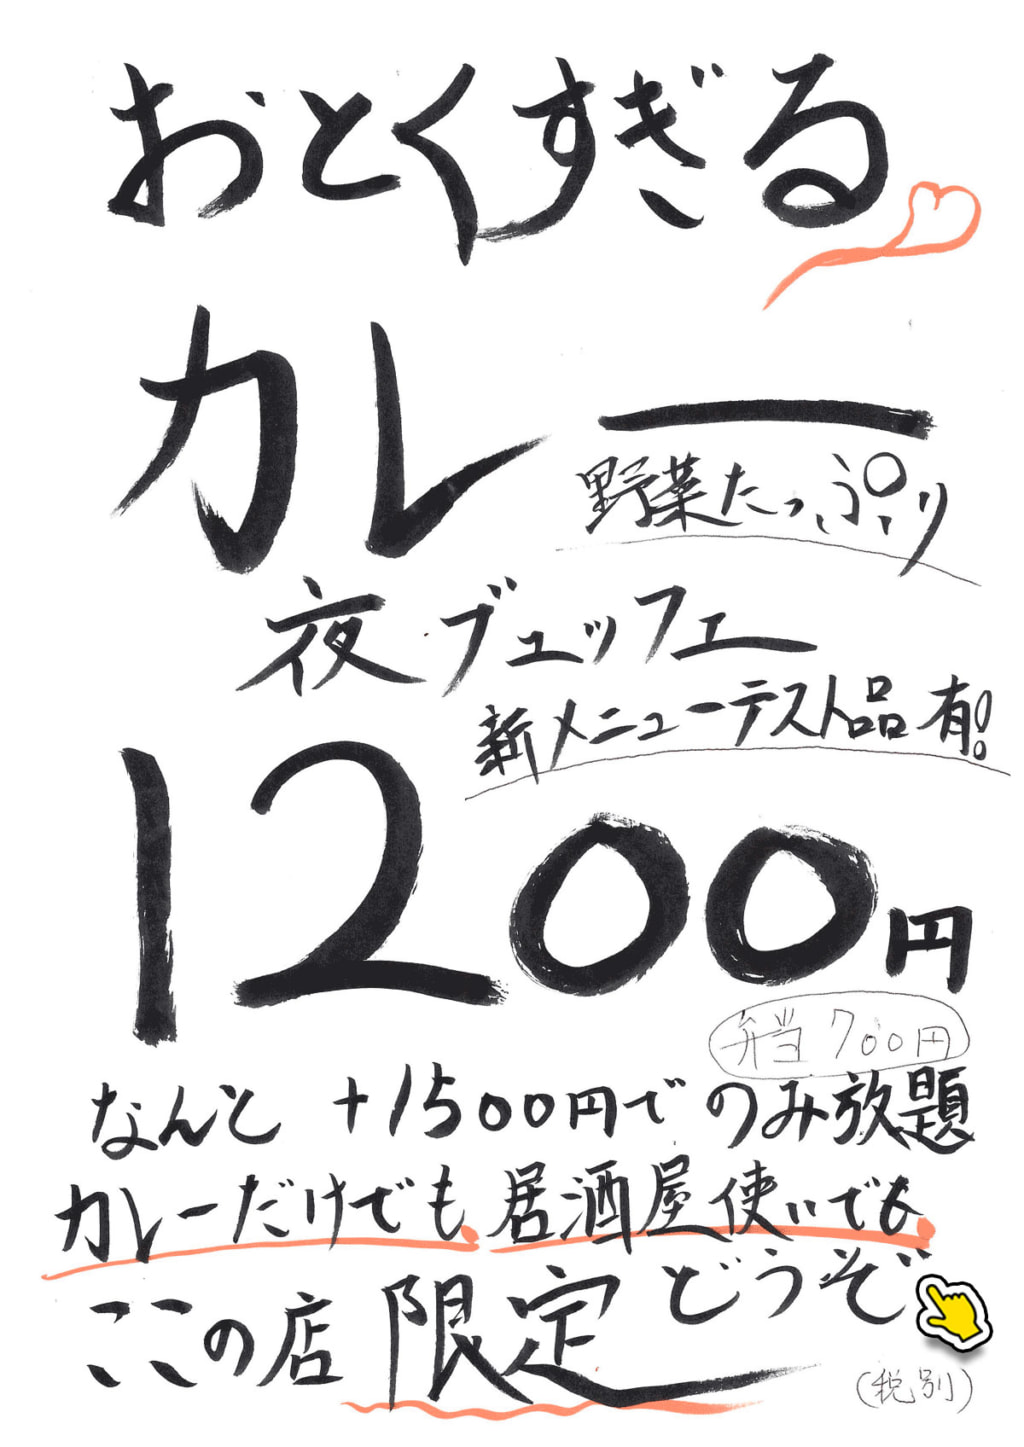 おとくすぎる
カレー
野菜たっぷり
夜ブュッフェ
新メニューテスト品有!
1200円
弁当700円
なんと +1500円でのみ放題
カレーだけでも、居酒屋使いでも、
ここの店限定どうぞ
(税別)